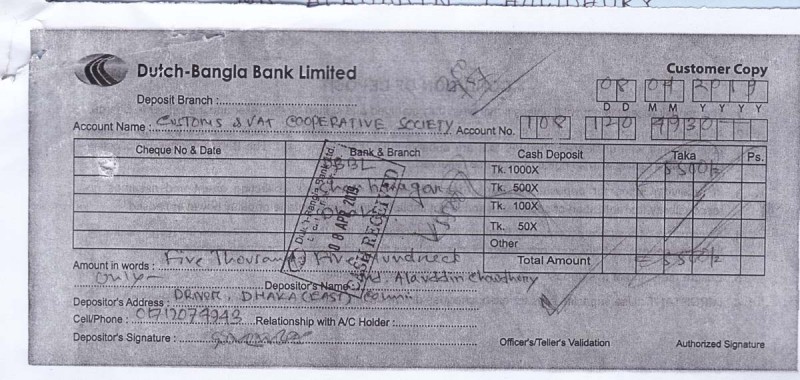 Dutch-Bangla Bank Limited
Customer Copy
Deposit Branch :
08 04 2019
D D M M Y Y Y Y
Account Name : CUSTOMS & VAT COOPERATIVE SOCIETY Account No. 108 120
Cheque No & Date Bank & Branch Cash Deposit Taka Ps.
DBBL Tk. 1000X 5500/-
Tk. 500X
Tk. 100X
Tk. 50X
Other
Total Amount = 5500/-
Dutch-Bangla Bank Ltd.
08 APR 2019
CASH RECEIVED
Amount in words : Five Thousand Five Hundred
only Depositor's Name Md. Alauddin Chowdhury
Depositor's Address : DRIVER, DHAKA (EAST)
Cell/Phone : 01712074943 Relationship with A/C Holder :
Depositor's Signature :
Officer's/Teller's Validation
Authorized Signature